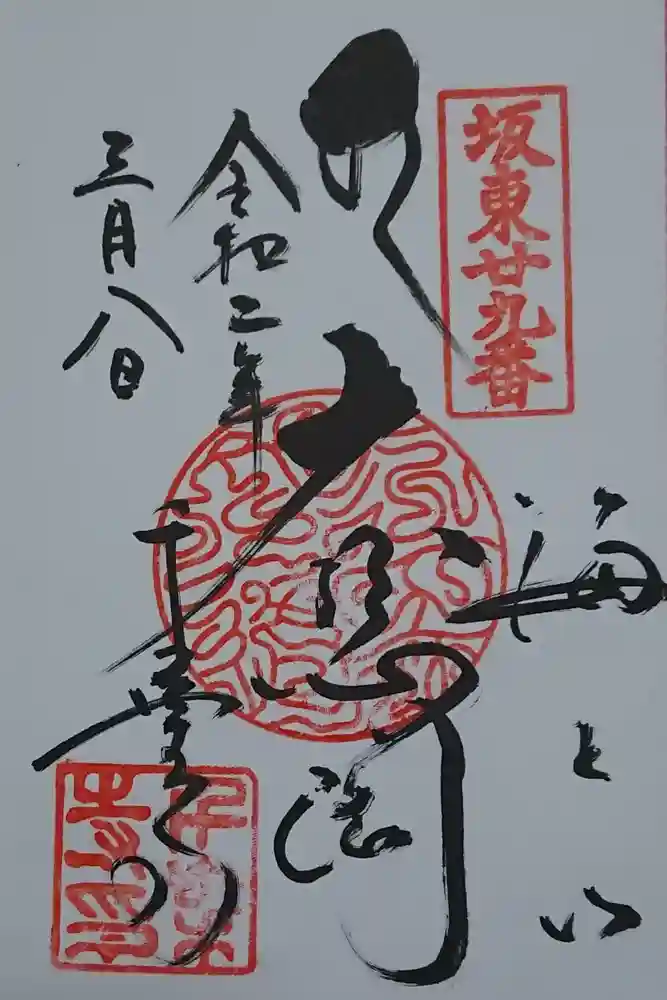 坂東廿九番
海上山
大悲閣
令和二年
千葉寺
三月八日